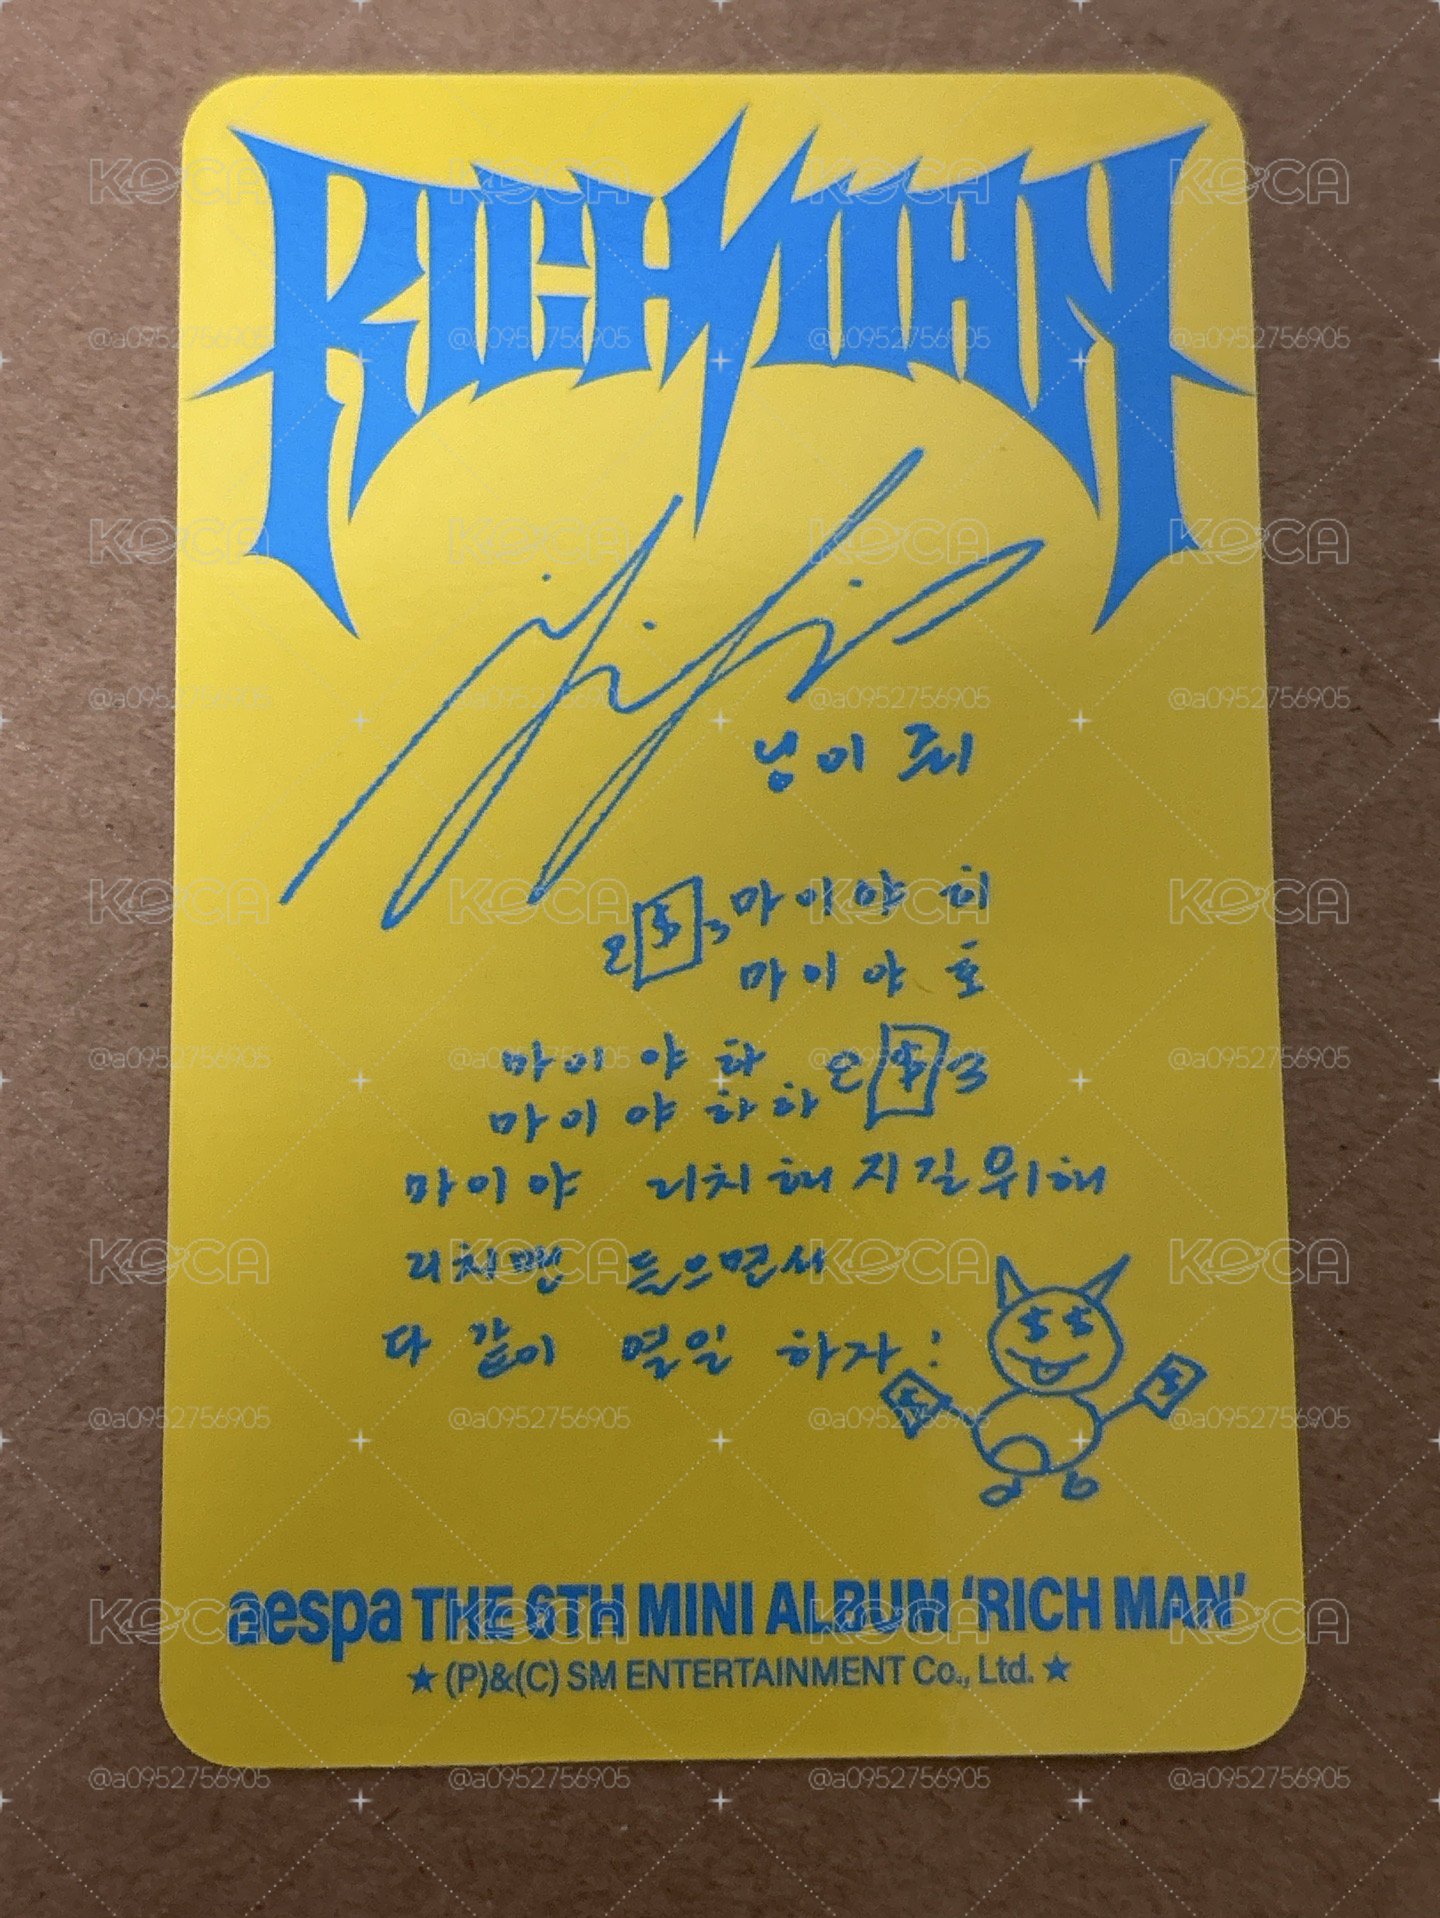 RICH MAN
닝이 쥐
마이야 히
마이야 호
마이야 하
마이야 하하
마이야 리치해지길위해
리치맨 들으면서
다 같이 열일 하자!
aespa THE 6TH MINI ALBUM ‘RICH MAN’
★ (P)&(C) SM ENTERTAINMENT Co., Ltd. ★
KOCA
@a0952756905